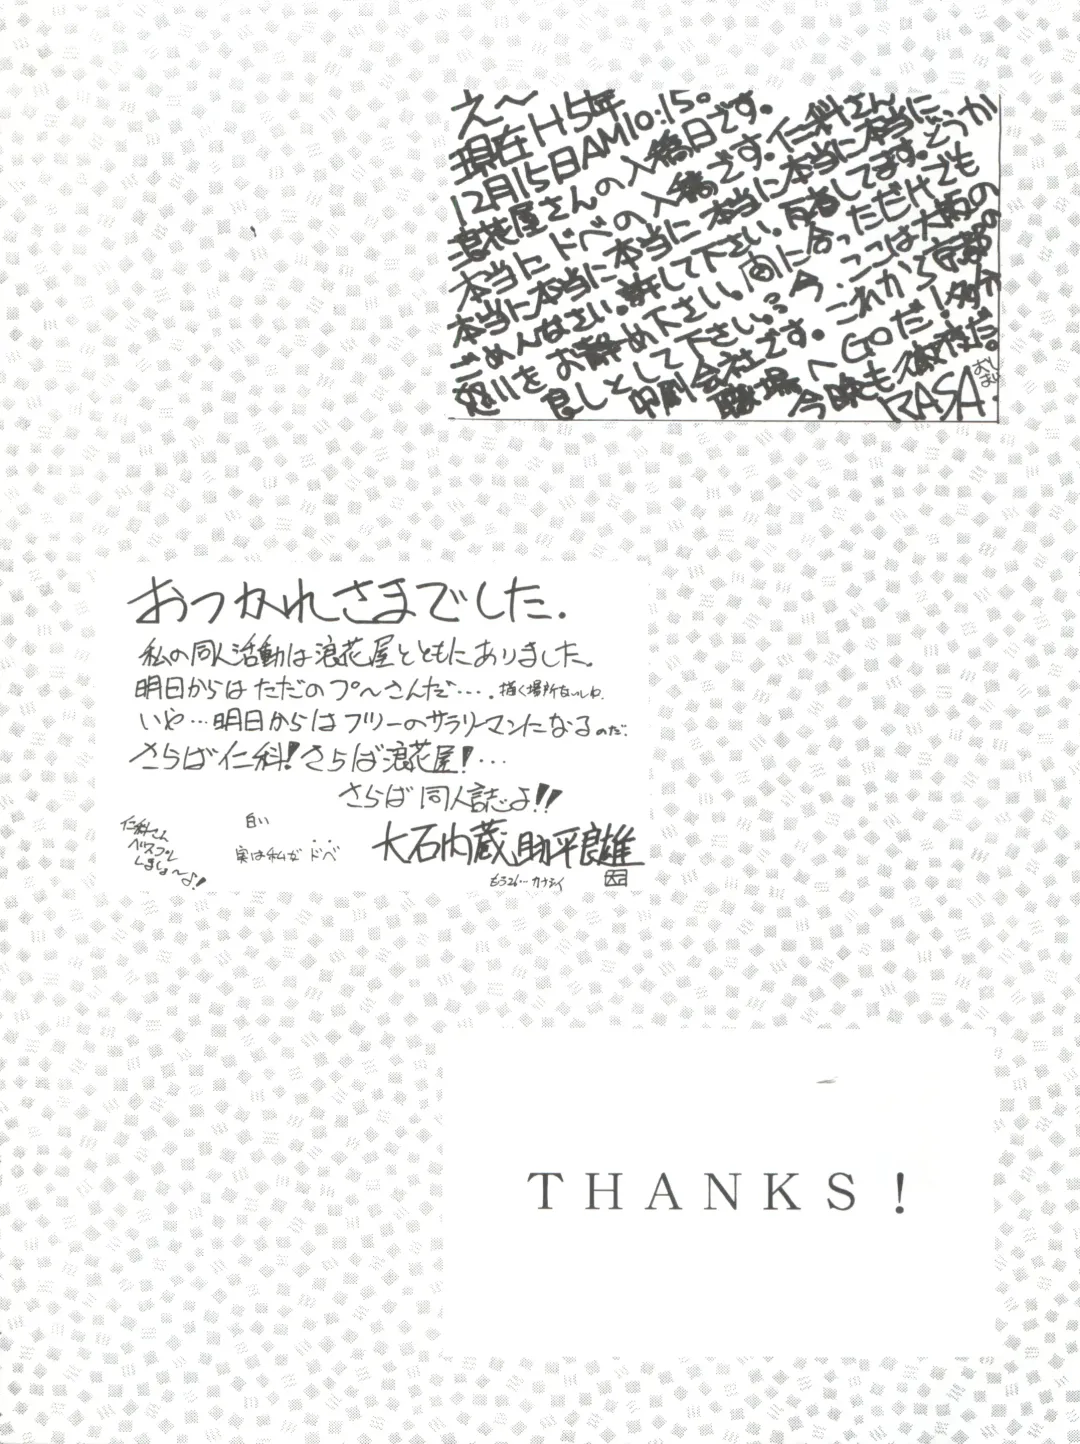 え〜
現在H5年
12月15日AM10:15。
浪花屋さんの入稿日です。
本当にドベの入稿です。仁科さん
本当に本当に本当に本当に本当に本当に
ごめんなさい。許して下さい。反省してます。どうか
怒りをお静め下さい。間に合っただけでも
良しとして下さい。今、ここは大阪の
印刷会社です。これから京都の
職場へGOだ！多分
今晩も徹夜だ。
RASA.
おわり
おつかれさまでした.
私の同人活動は浪花屋とともにありました。
明日からはただのプ〜さんだ‥‥. 描く場所ないしね.
いや…明日からはフツーのサラリーマンになるのだ.
さらば仁科！さらば浪花屋！…
さらば同人誌よ！！
仁科さん
パズプル
しましょ〜よ！
白い
実は私がドベ
大石内蔵助平良雄
もう26…カナシイ
THANKS！